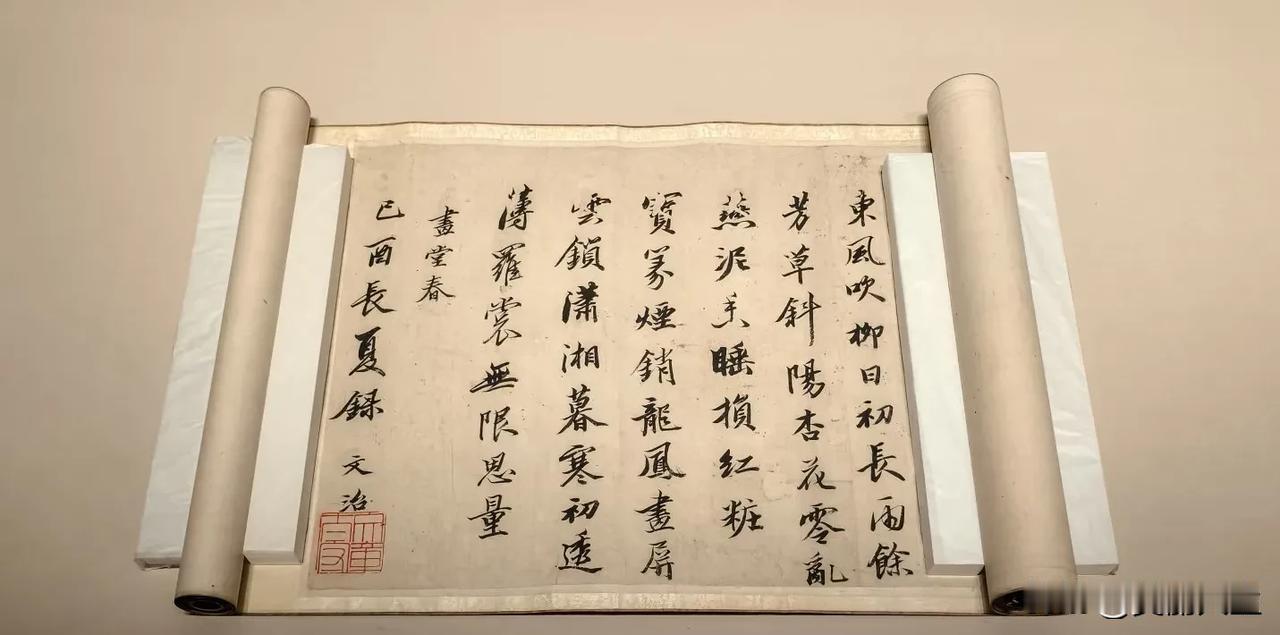 東風吹柳日初長雨餘
芳草斜陽杏花零亂
燕泥香睡損紅粧
寶篆煙銷龍鳳畫屏
雲鎖瀟湘暮寒初透
薄羅裳無限思量
畫堂春
己酉長夏録 文治